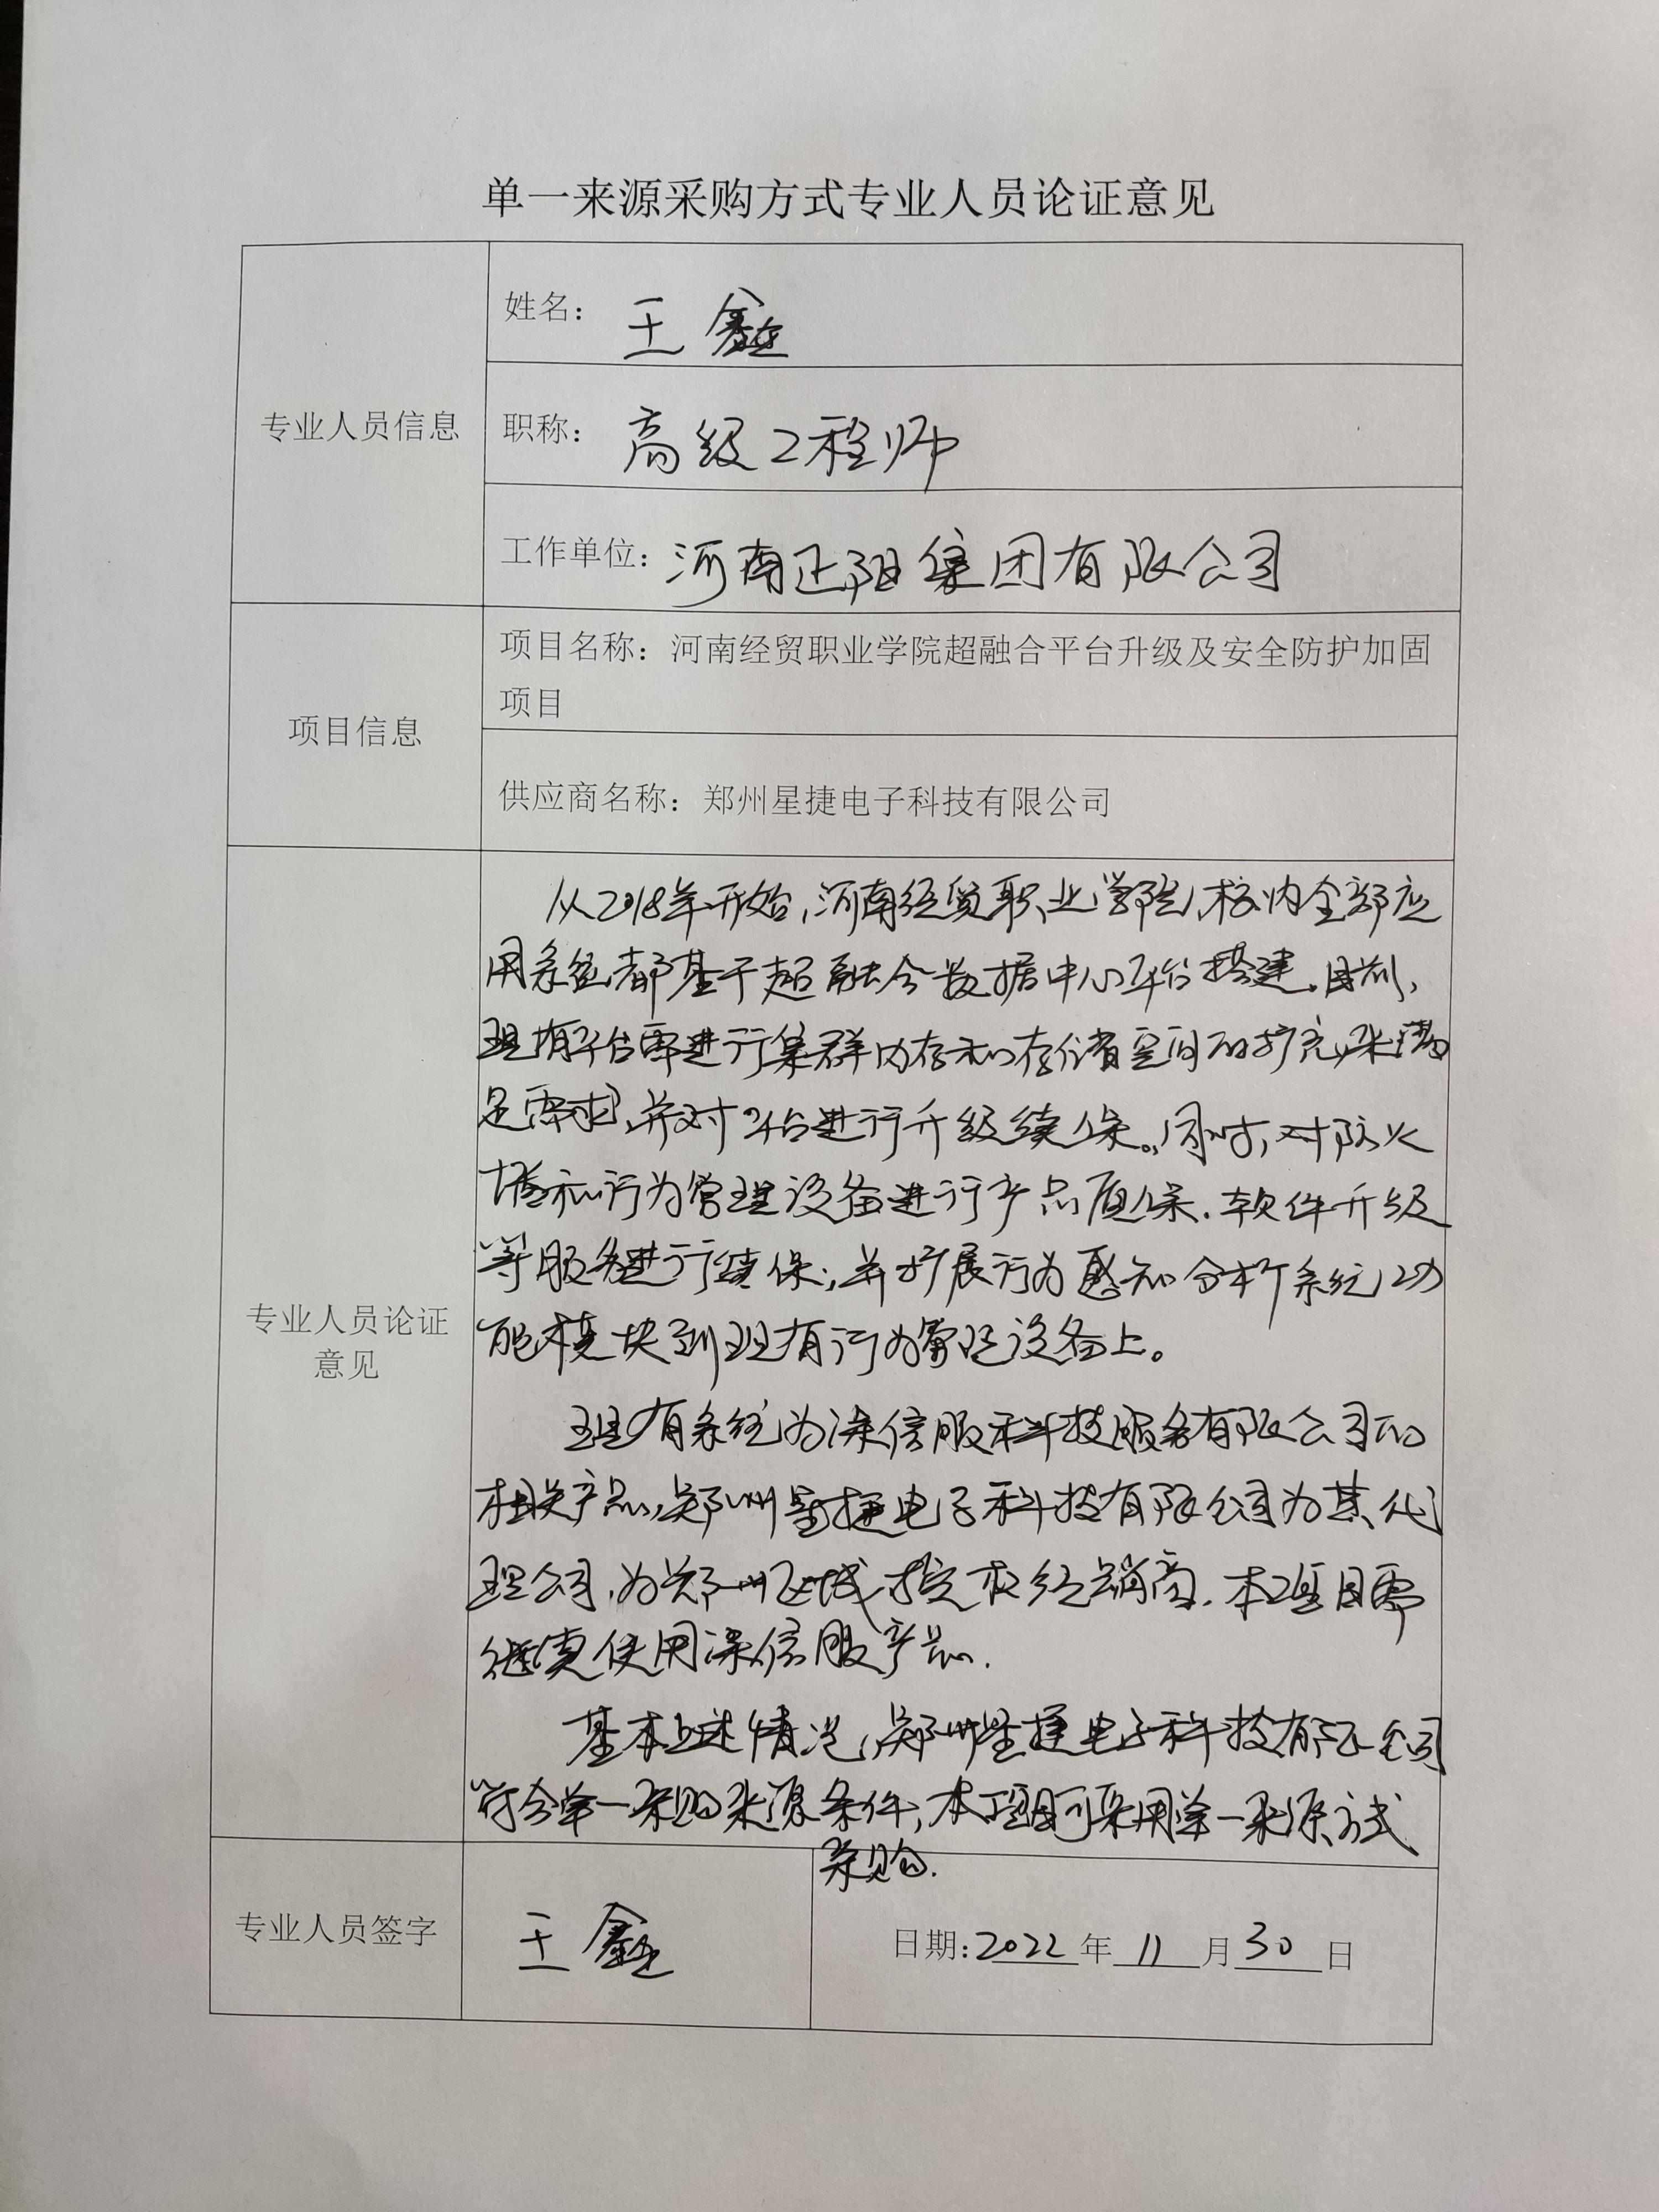 单一来源采购方式专业人员论证意见
专业人员信息
姓名：王鑫
职称：高级工程师
工作单位：河南正阳集团有限公司
项目信息
项目名称：河南经贸职业学院超融合平台升级及安全防护加固
项目
供应商名称：郑州星捷电子科技有限公司
专业人员论证
意见
从2018年开始，河南经贸职业学院，校内全部应
用系统都基于超融合数据中心平台搭建。目前，
现有平台需进行集群内存和存储空间的扩充，来满
足需求，并对平台进行升级续保。同时，对防火
墙和行为管理设备进行产品质保、软件升级
等服务进行续保，并扩展行为感知分析系统功
能模块到现有行为管理设备上。
现有系统为深信服科技服务有限公司的
相关产品，郑州星捷电子科技有限公司为其代
理公司，为郑州区域授权经销商。本项目需
继续使用深信服产品。
基本上述情况，郑州星捷电子科技有限公司
符合单一采购来源条件，本项目可采用单一来源方式
采购。
专业人员签字
王鑫
日期：2022年11月30日